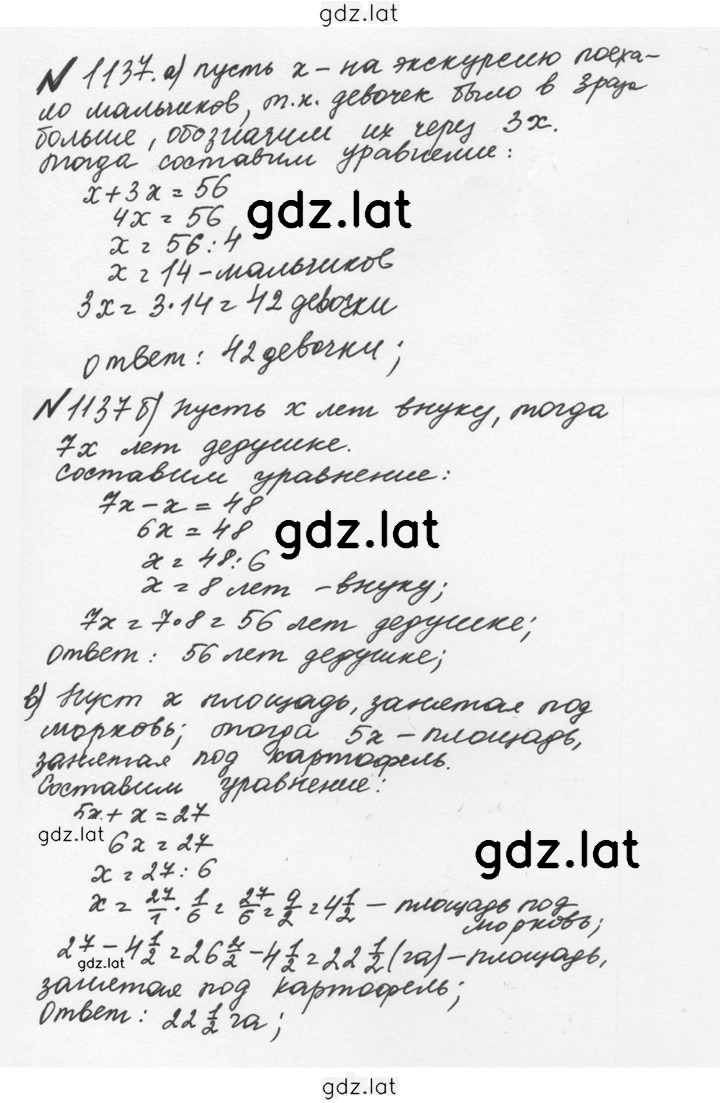 gdz.lat
№1137. а) пусть х – на экскурсию поеха-
ло мальчиков, т.к. девочек было в 3 раза
больше, обозначим их через 3х.
тогда составим уравнение:
х + 3х = 56
4х = 56
gdz.lat
х = 56 : 4
х = 14 – мальчиков
3х = 3·14 = 42 девочки
ответ: 42 девочки;
№1137 б) пусть х лет внуку, тогда
7х лет дедушке.
Составим уравнение:
7х – х = 48
6х = 48
gdz.lat
х = 48 : 6
х = 8 лет – внуку;
7х = 7·8 = 56 лет дедушке;
ответ: 56 лет дедушке;
в) Пуст х площадь, занятая под
морковь; тогда 5х – площадь,
занятая под картофель.
Составим уравнение:
5х + х = 27
gdz.lat
6х = 27
gdz.lat
х = 27 : 6
х = 27/1 · 1/6 = 27/6 = 9/2 = 4 1/2 – площадь под
морковь;
27 – 4 1/2 = 26 2/2 – 4 1/2 = 22 1/2 (га) – площадь,
gdz.lat
занятая под картофель;
Ответ: 22 1/2 га;
gdz.lat